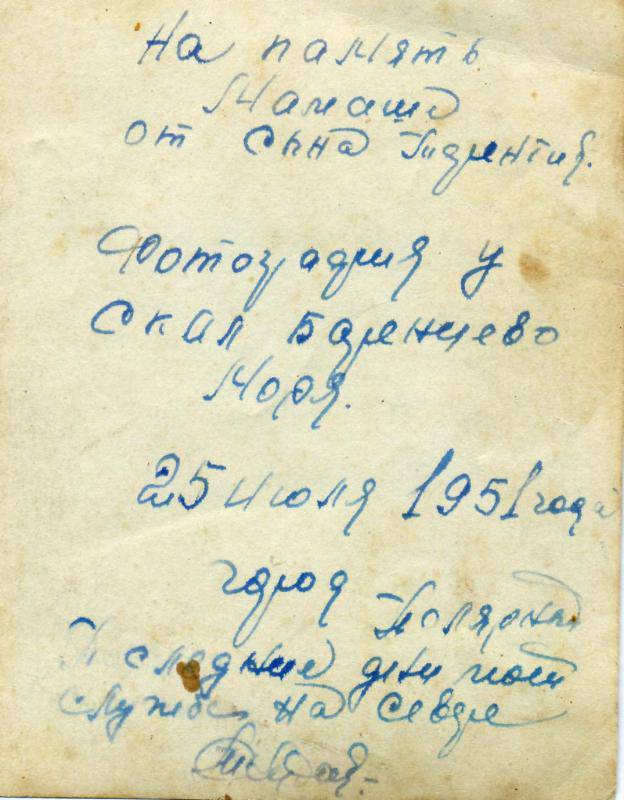 На память
Мамаше
от сына
Фотография у
скал Баренцево
моря.
25 июля 1951 года
город Полярный
Последние дни моей
службы на севере